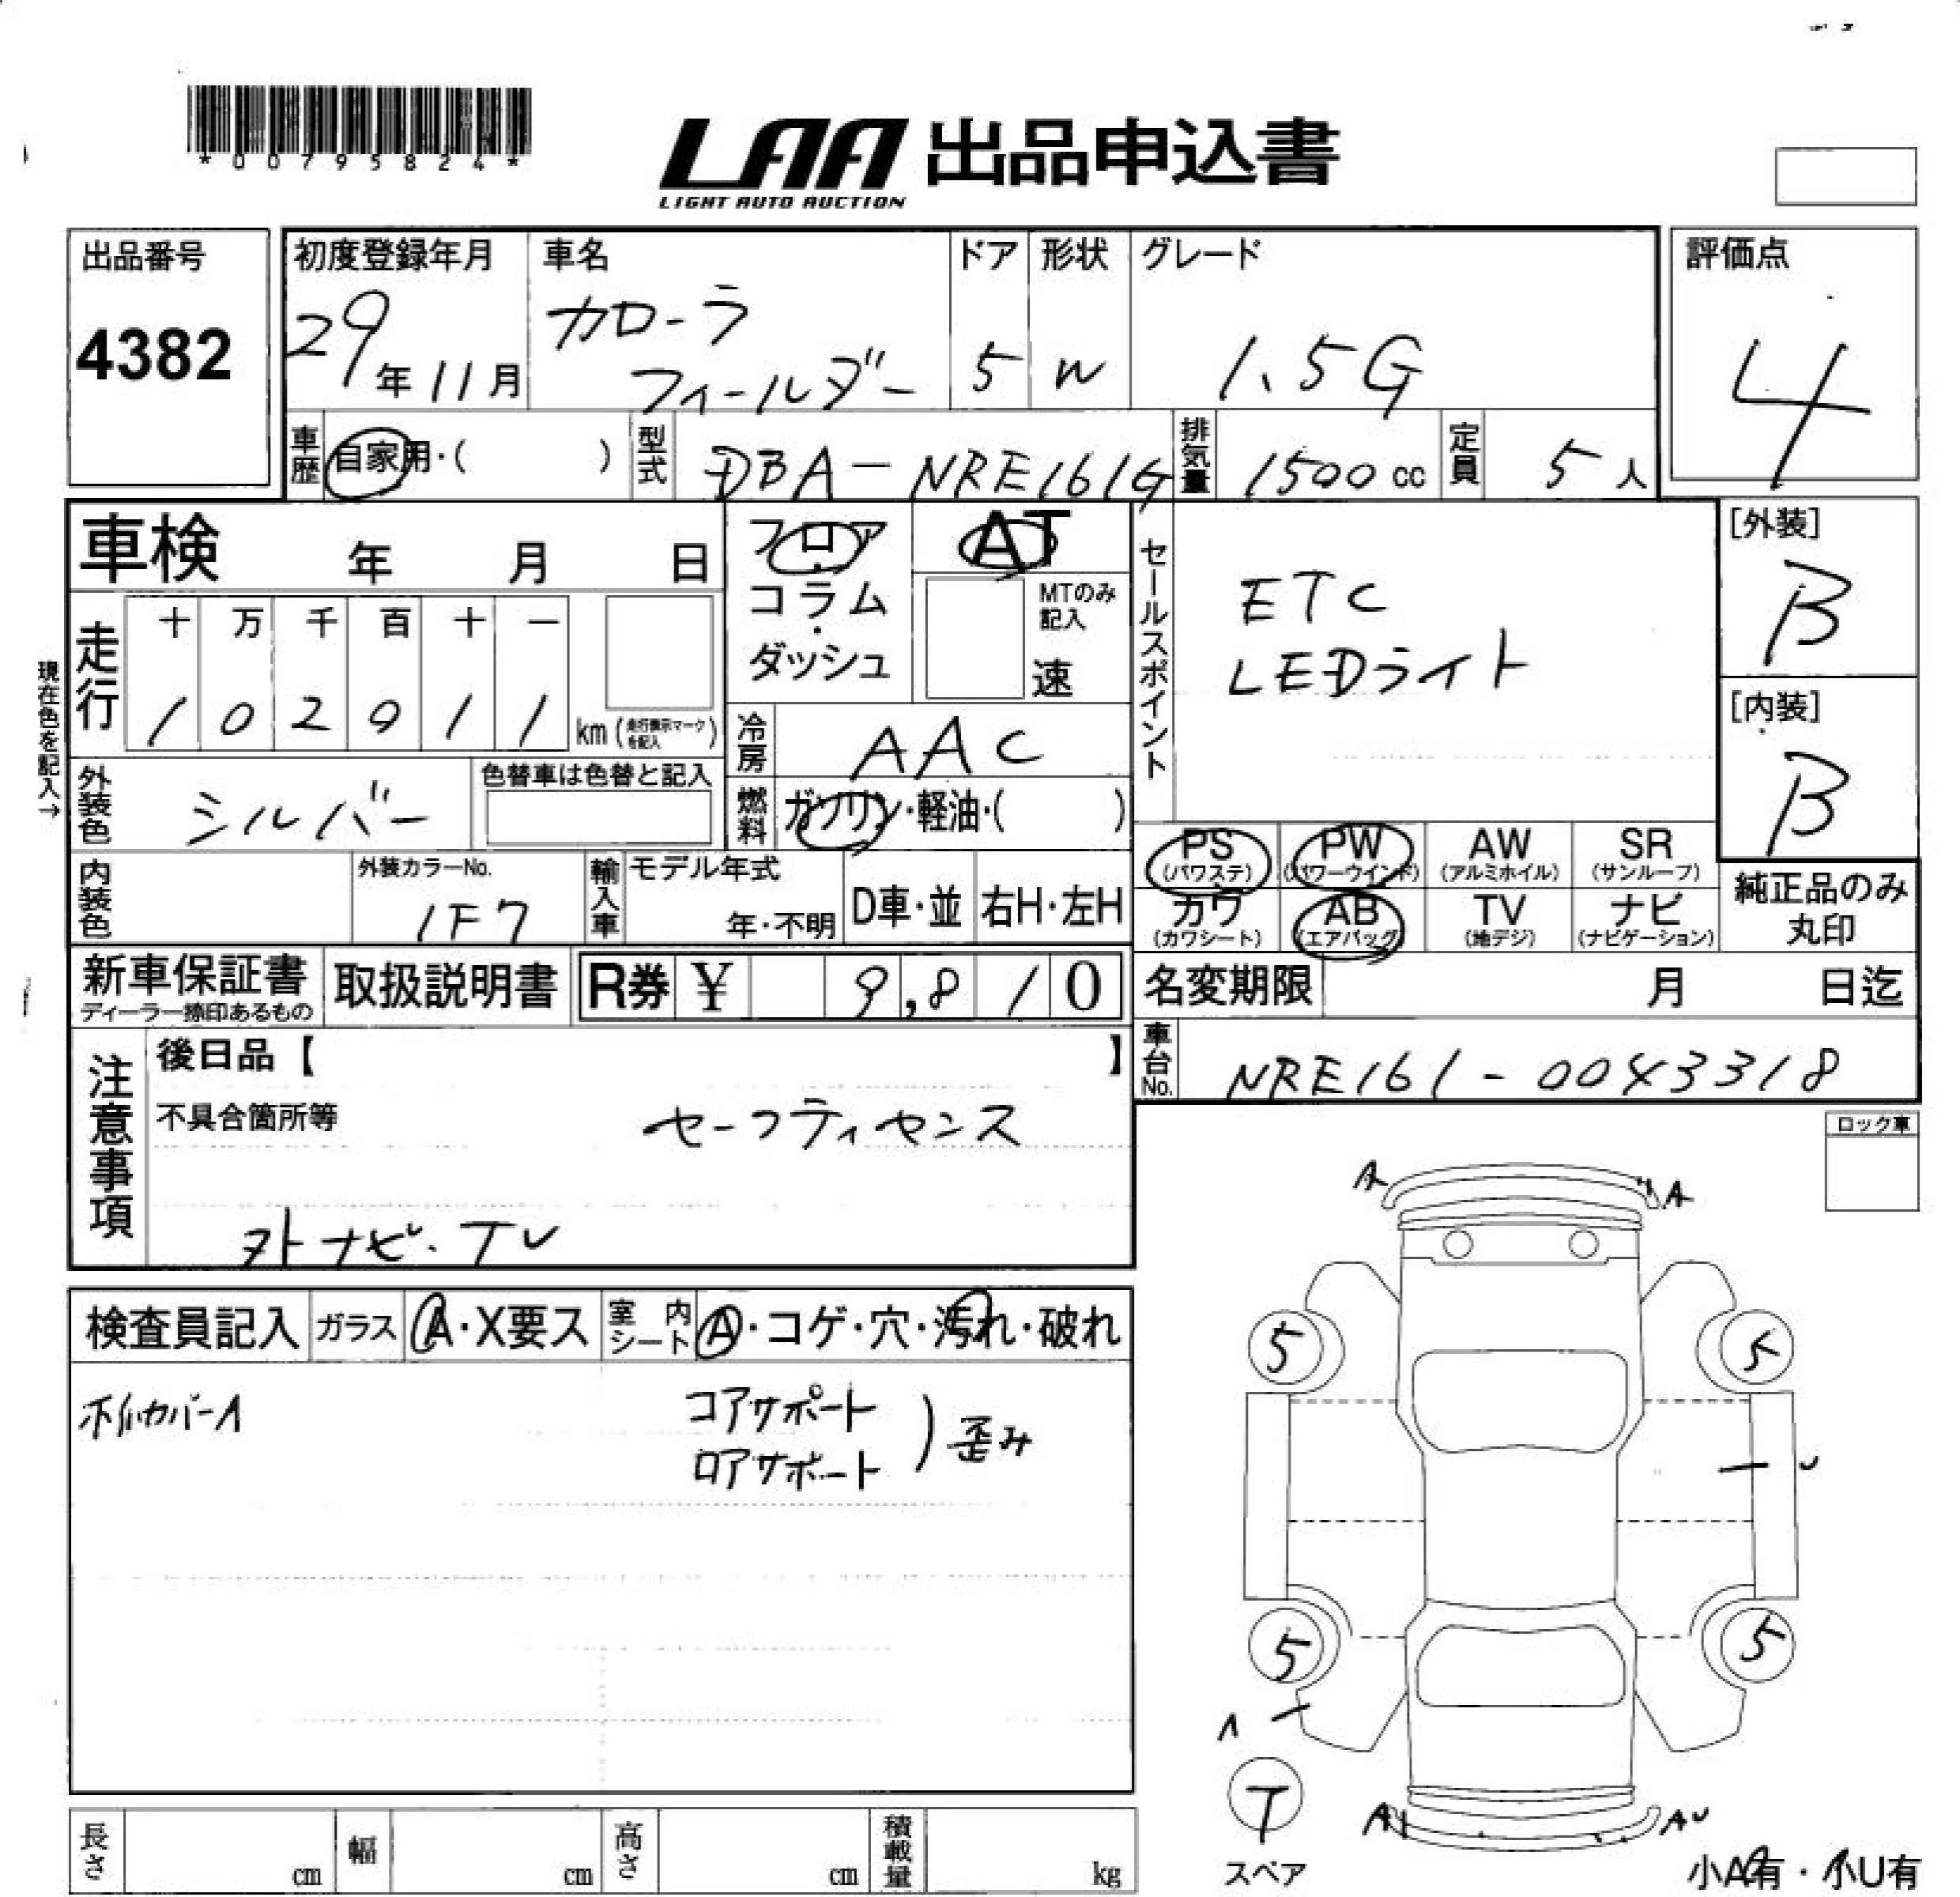 *00795824*
LAA 出品申込書
LIGHT AUTO AUCTION
出品番号
4382
初度登録年月
29年11月
車名
カローラ
フィールダー
ドア
5
形状
W
グレード
1.5G
評価点
4
車歴
自家用・( )
型式
DBA-NRE161G
排気量
1500cc
定員
5人
車検 年 月 日
フロア
・
コラム
・
ダッシュ
AT
MTのみ
記入
速
セールスポイント
ETC
LEDライト
[外装]
B
[内装]
B
現在色を記入→
走行
十 万 千 百 十 一
1 0 2 9 1 1
km(走行表示マークを記入)
冷房
AAC
外装色
シルバー
色替車は色替と記入
燃料
ガソリン・軽油・( )
PS
(パワステ)
PW
(パワーウインド)
AW
(アルミホイル)
SR
(サンルーフ)
カワ
(カワシート)
AB
(エアバッグ)
TV
(地デジ)
ナビ
(ナビゲーション)
純正品のみ
丸印
内装色
外装カラーNo.
1F7
輸入車
モデル年式
年・不明
D車・並
右H・左H
新車保証書
ディーラー捺印あるもの
取扱説明書
R券 ¥ 9,810
名変期限 月 日迄
車台No.
NRE161-0043318
注意事項
後日品【 】
不具合箇所等
セーフティセンス
外ナビ・TV
ロック車
検査員記入
ガラス
A・X要ス
室内
シート
A・コゲ・穴・汚れ・破れ
ホイルカバーA
コアサポート
ロアサポート
)歪み
A
A
5
5
U
5
5
A
T
スペア
A
AU
小A有・小U有
長さ cm
幅 cm
高さ cm
積載量 kg